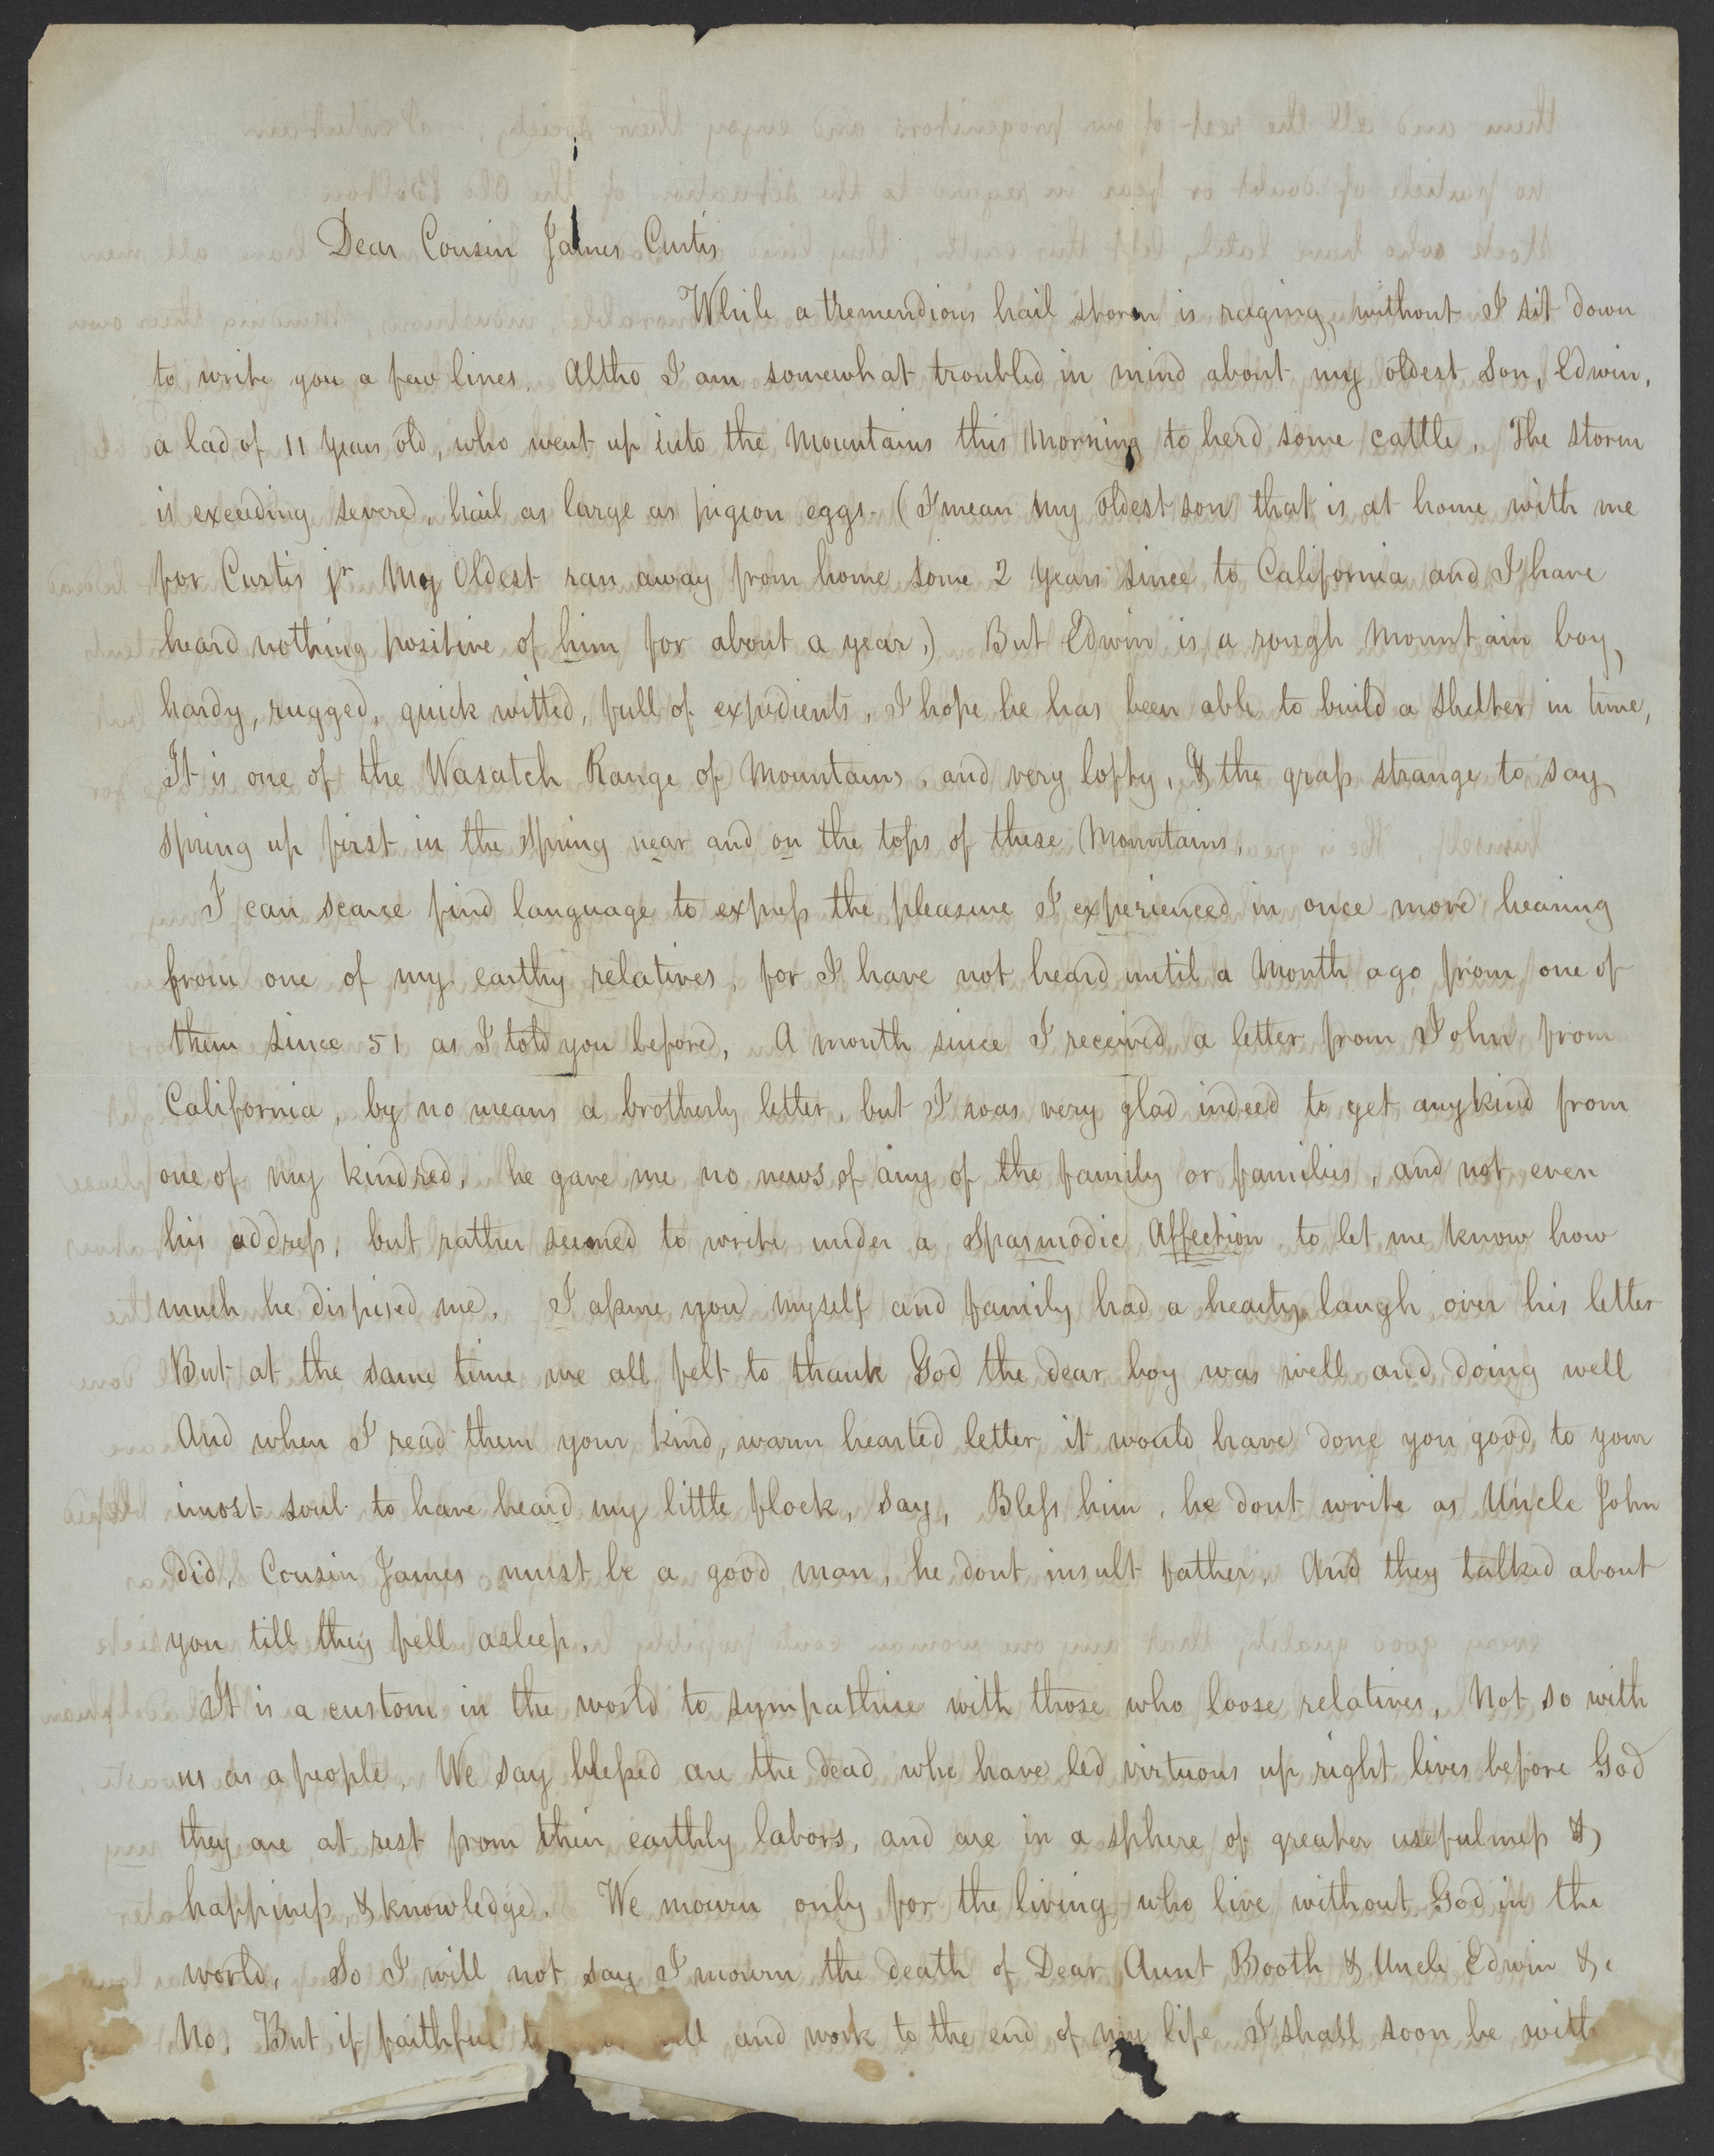 Dear Cousin James Curtis
While a tremendious hail storm is raging without I sit down
to write you a few lines. Altho I am somewhat troubled in mind about my oldest Son, Edwin,
a lad of 11 years old, who went up into the Mountains this Morning to herd some cattle. The storm
is exceeding severe, hail as large as pigeon eggs. (I mean my oldest son that is at home with me
for Curtis jr My Oldest ran away from home some 2 years since to California and I have
heard nothing positive of him for about a year.) But Edwin is a rough Mountain boy,
hardy, rugged, quick witted, full of expedients, I hope he has been able to build a shelter in time,
It is one of the Wasatch Range of Mountains, and very lofty, & the grass strange to say
spring up first in the spring near and on the tops of these Mountains.
I can scarce find language to express the pleasure I experienced in once more hearing
from one of my earthy relatives, for I have not heard until a Month ago from one of
them since 51 as I told you before, A month since I received a letter from John from
California, by no means a brotherly letter, but I was very glad indeed to get anykind from
one of my kindred, he gave me no news of any of the family or families, and not even
his address, but rather seemed to write under a Spasmodic Affection to let me know how
much he dispised me. I assure you myself and family had a hearty laugh over his letter
But at the same time we all felt to thank God the dear boy was well and doing well
And when I read them your kind, warm hearted letter it would have done you good to your
imost soul to have heard my little flock, say, Bless him, he dont write as Uncle John
did, Cousin James must be a good man, he dont insult father. And they talked about
you till they fell asleep.
It is a custom in the world to sympathise with those who loose relatives, Not so with
us as a people, We say blessed are the dead who have led virtuous up right lives before God
they are at rest from their earthly labors, and are in a sphere of greater usefulness &
happiness, & knowledge. We mourn only for the living who live without God in the
world, So I will not say I mourn the death of Dear Aunt Booth & Uncle Edwin &c
No. But if faithful and work to the end of my life I shall soon be with